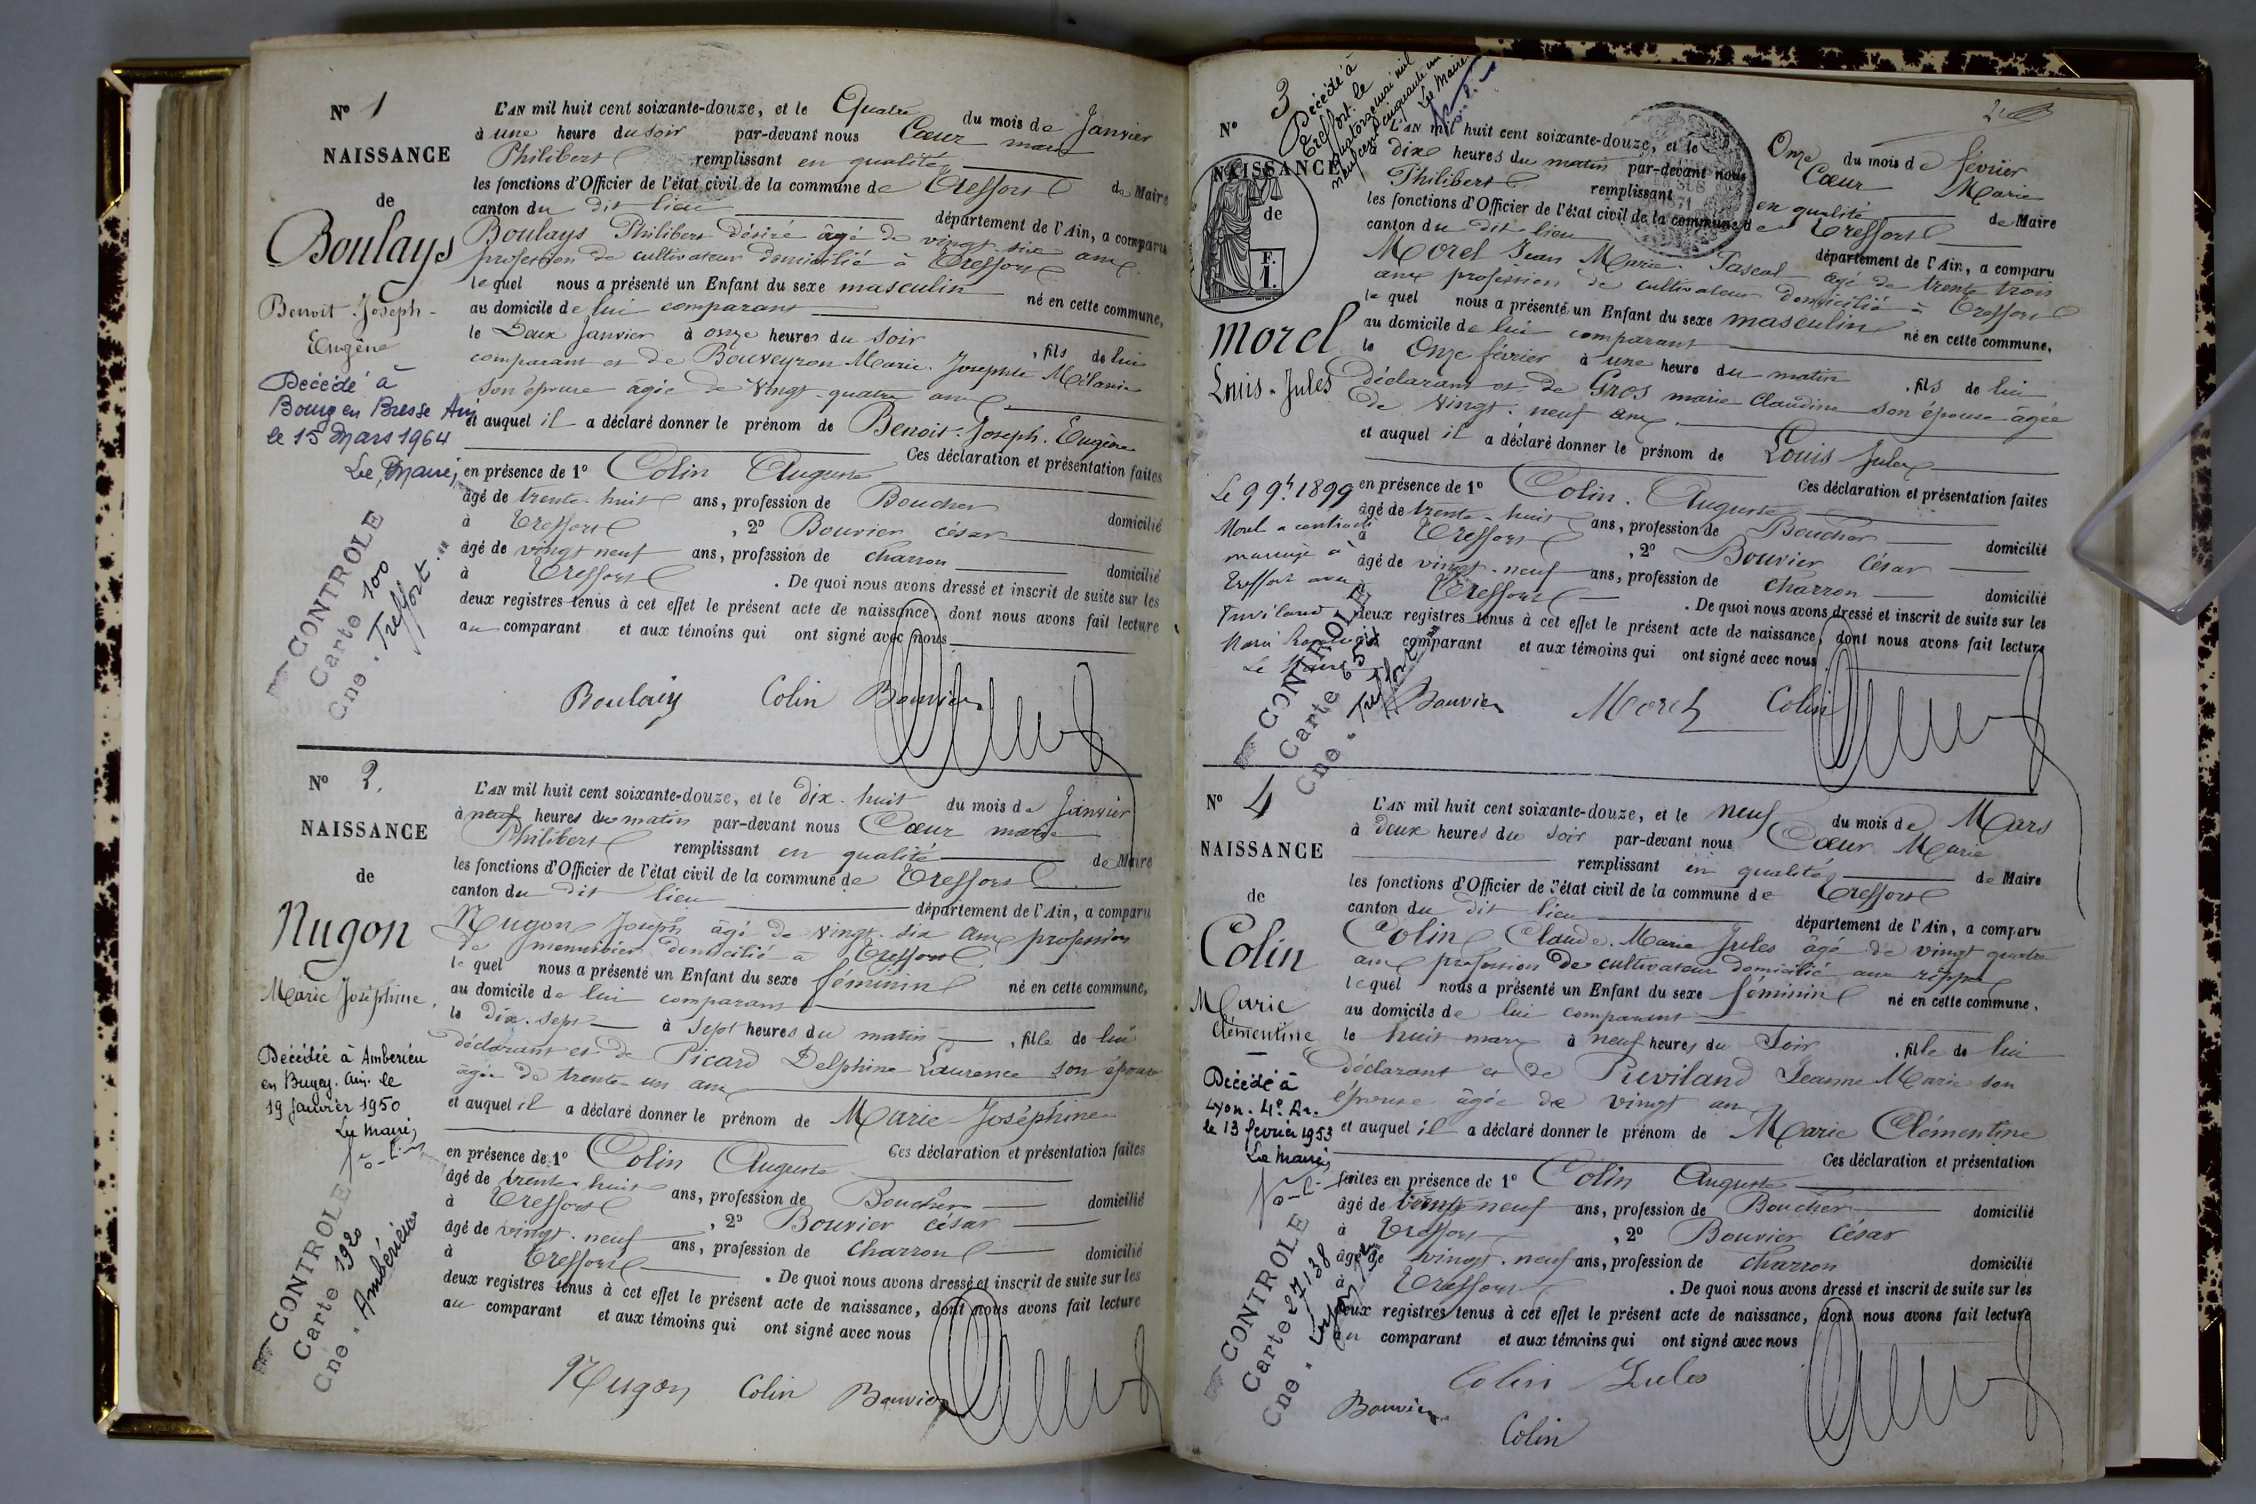 Nº 1
NAISSANCE
de
Boulays
Benoit-Joseph-
Eugène
Décédé à
Bourg en Bresse Ain
le 15 Mars 1964
Le Maire,
CONTROLE
Carte 100
Cne. Treffort
L'AN mil huit cent soixante-douze, et le Quatre du mois de Janvier
à une heure du soir par-devant nous Cœur marie
Philibert remplissant en qualité de Maire
les fonctions d'Officier de l'état civil de la commune de Treffort
canton du dit lieu département de l'Ain, a comparu
Boulays Philibert désiré âgé de vingt-six ans
profession de cultivateur domicilié à Treffort
lequel nous a présenté un Enfant du sexe masculin né en cette commune,
au domicile de lui comparant
le Deux Janvier à onze heures du soir , fils de lui
comparant et de Bouveyron Marie-Josephte Mélanie
son épouse âgée de vingt-quatre ans
et auquel il a déclaré donner le prénom de Benoit-Joseph-Eugène
Ces déclaration et présentation faites
en présence de 1º Colin Auguste
âgé de trente-huit ans, profession de Boucher domicilié
à Treffort , 2º Bouvier césar
âgé de vingt neuf ans, profession de charron domicilié
à Treffort . De quoi nous avons dressé et inscrit de suite sur les
deux registres tenus à cet effet le présent acte de naissance, dont nous avons fait lecture
au comparant et aux témoins qui ont signé avec nous
Boulays Colin Bouvier
Nº 2.
NAISSANCE
de
Nugon
Marie Joséphine
Décédée à Amberieu
en Bugey. Ain. le
19 Janvier 1950
Le Maire,
CONTROLE
Carte 1920
Cne. Ambérieu
L'AN mil huit cent soixante-douze, et le dix-huit du mois de Janvier
à neuf heures du matin par-devant nous Cœur marie
Philibert remplissant en qualité de Maire
les fonctions d'Officier de l'état civil de la commune de Treffort
canton du dit lieu département de l'Ain, a comparu
Nugon Joseph âgé de vingt-six ans profession
de menuisier domicilié à Treffort
lequel nous a présenté un Enfant du sexe féminin né en cette commune,
au domicile de lui comparant
le dix-sept à sept heures du matin , fille de lui
déclarant et de Picard Delphine Laurence son épouse
âgée de trente-un ans
et auquel il a déclaré donner le prénom de Marie-Joséphine
Ces déclaration et présentation faites
en présence de 1º Colin Auguste
âgé de trente-huit ans, profession de Boucher domicilié
à Treffort , 2º Bouvier césar
âgé de vingt-neuf ans, profession de charron domicilié
à Treffort . De quoi nous avons dressé et inscrit de suite sur les
deux registres tenus à cet effet le présent acte de naissance, dont nous avons fait lecture
au comparant et aux témoins qui ont signé avec nous
Nugon Colin Bouvier
Nº 3
NAISSANCE
de
F.
1.
Morel
Louis-Jules
Décédé à
Treffort le
quatorze mai mil
neuf cent cinquante un
Le Maire
Le 9 9bre 1899
Morel a contracté
mariage à
Treffort avec
Le Maire
CONTROLE
Carte 654
Cne. Treffort
L'AN mil huit cent soixante-douze, et le Onze du mois de février
à dix heures du matin par-devant nous Cœur Marie
Philibert remplissant en qualité de Maire
les fonctions d'Officier de l'état civil de la commune de Treffort
canton du dit lieu département de l'Ain, a comparu
Morel Jean Marie Pascal âgé de trente trois
ans profession de cultivateur domicilié à Treffort
lequel nous a présenté un Enfant du sexe masculin né en cette commune,
au domicile de lui comparant
le Onze février à une heure du matin , fils de lui
déclarant et de Gros marie Claudine son épouse âgée
de vingt-neuf ans
et auquel il a déclaré donner le prénom de Louis Jules
Ces déclaration et présentation faites
en présence de 1º Colin Auguste
âgé de trente-huit ans, profession de Boucher domicilié
à Treffort , 2º Bouvier César
âgé de vingt-neuf ans, profession de charron domicilié
Treffort . De quoi nous avons dressé et inscrit de suite sur les
deux registres tenus à cet effet le présent acte de naissance, dont nous avons fait lecture
comparant et aux témoins qui ont signé avec nous
Bouvier Morel Colin
Nº 4
NAISSANCE
de
Colin
Marie
Clémentine
Décédé à
Lyon. 4e Ar.
le 13 février 1953
Le Maire,
CONTROLE
Carte 27138
Cne. Lyon
L'AN mil huit cent soixante-douze, et le neuf du mois de Mars
à deux heures du soir par-devant nous Cœur Marie
remplissant en qualité de Maire
les fonctions d'Officier de l'état civil de la commune de Treffort
canton du dit lieu département de l'Ain, a comparu
Colin Claude-Marie Jules âgé de vingt quatre
ans profession de cultivateur domicilié aux
lequel nous a présenté un Enfant du sexe féminin né en cette commune,
au domicile de lui comparant
le huit mars à neuf heures du Soir , fille de lui
déclarant et de Puviland Jeanne Marie son
épouse âgée de vingt ans
et auquel il a déclaré donner le prénom de Marie Clémentine
Ces déclaration et présentation
faites en présence de 1º Colin Auguste
âgé de trente neuf ans, profession de Boucher domicilié
à Treffort , 2º Bouvier César
âgé de vingt-neuf ans, profession de charron domicilié
à Treffort . De quoi nous avons dressé et inscrit de suite sur les
deux registres tenus à cet effet le présent acte de naissance, dont nous avons fait lecture
au comparant et aux témoins qui ont signé avec nous
Colin Jules
Bouvier
Colin